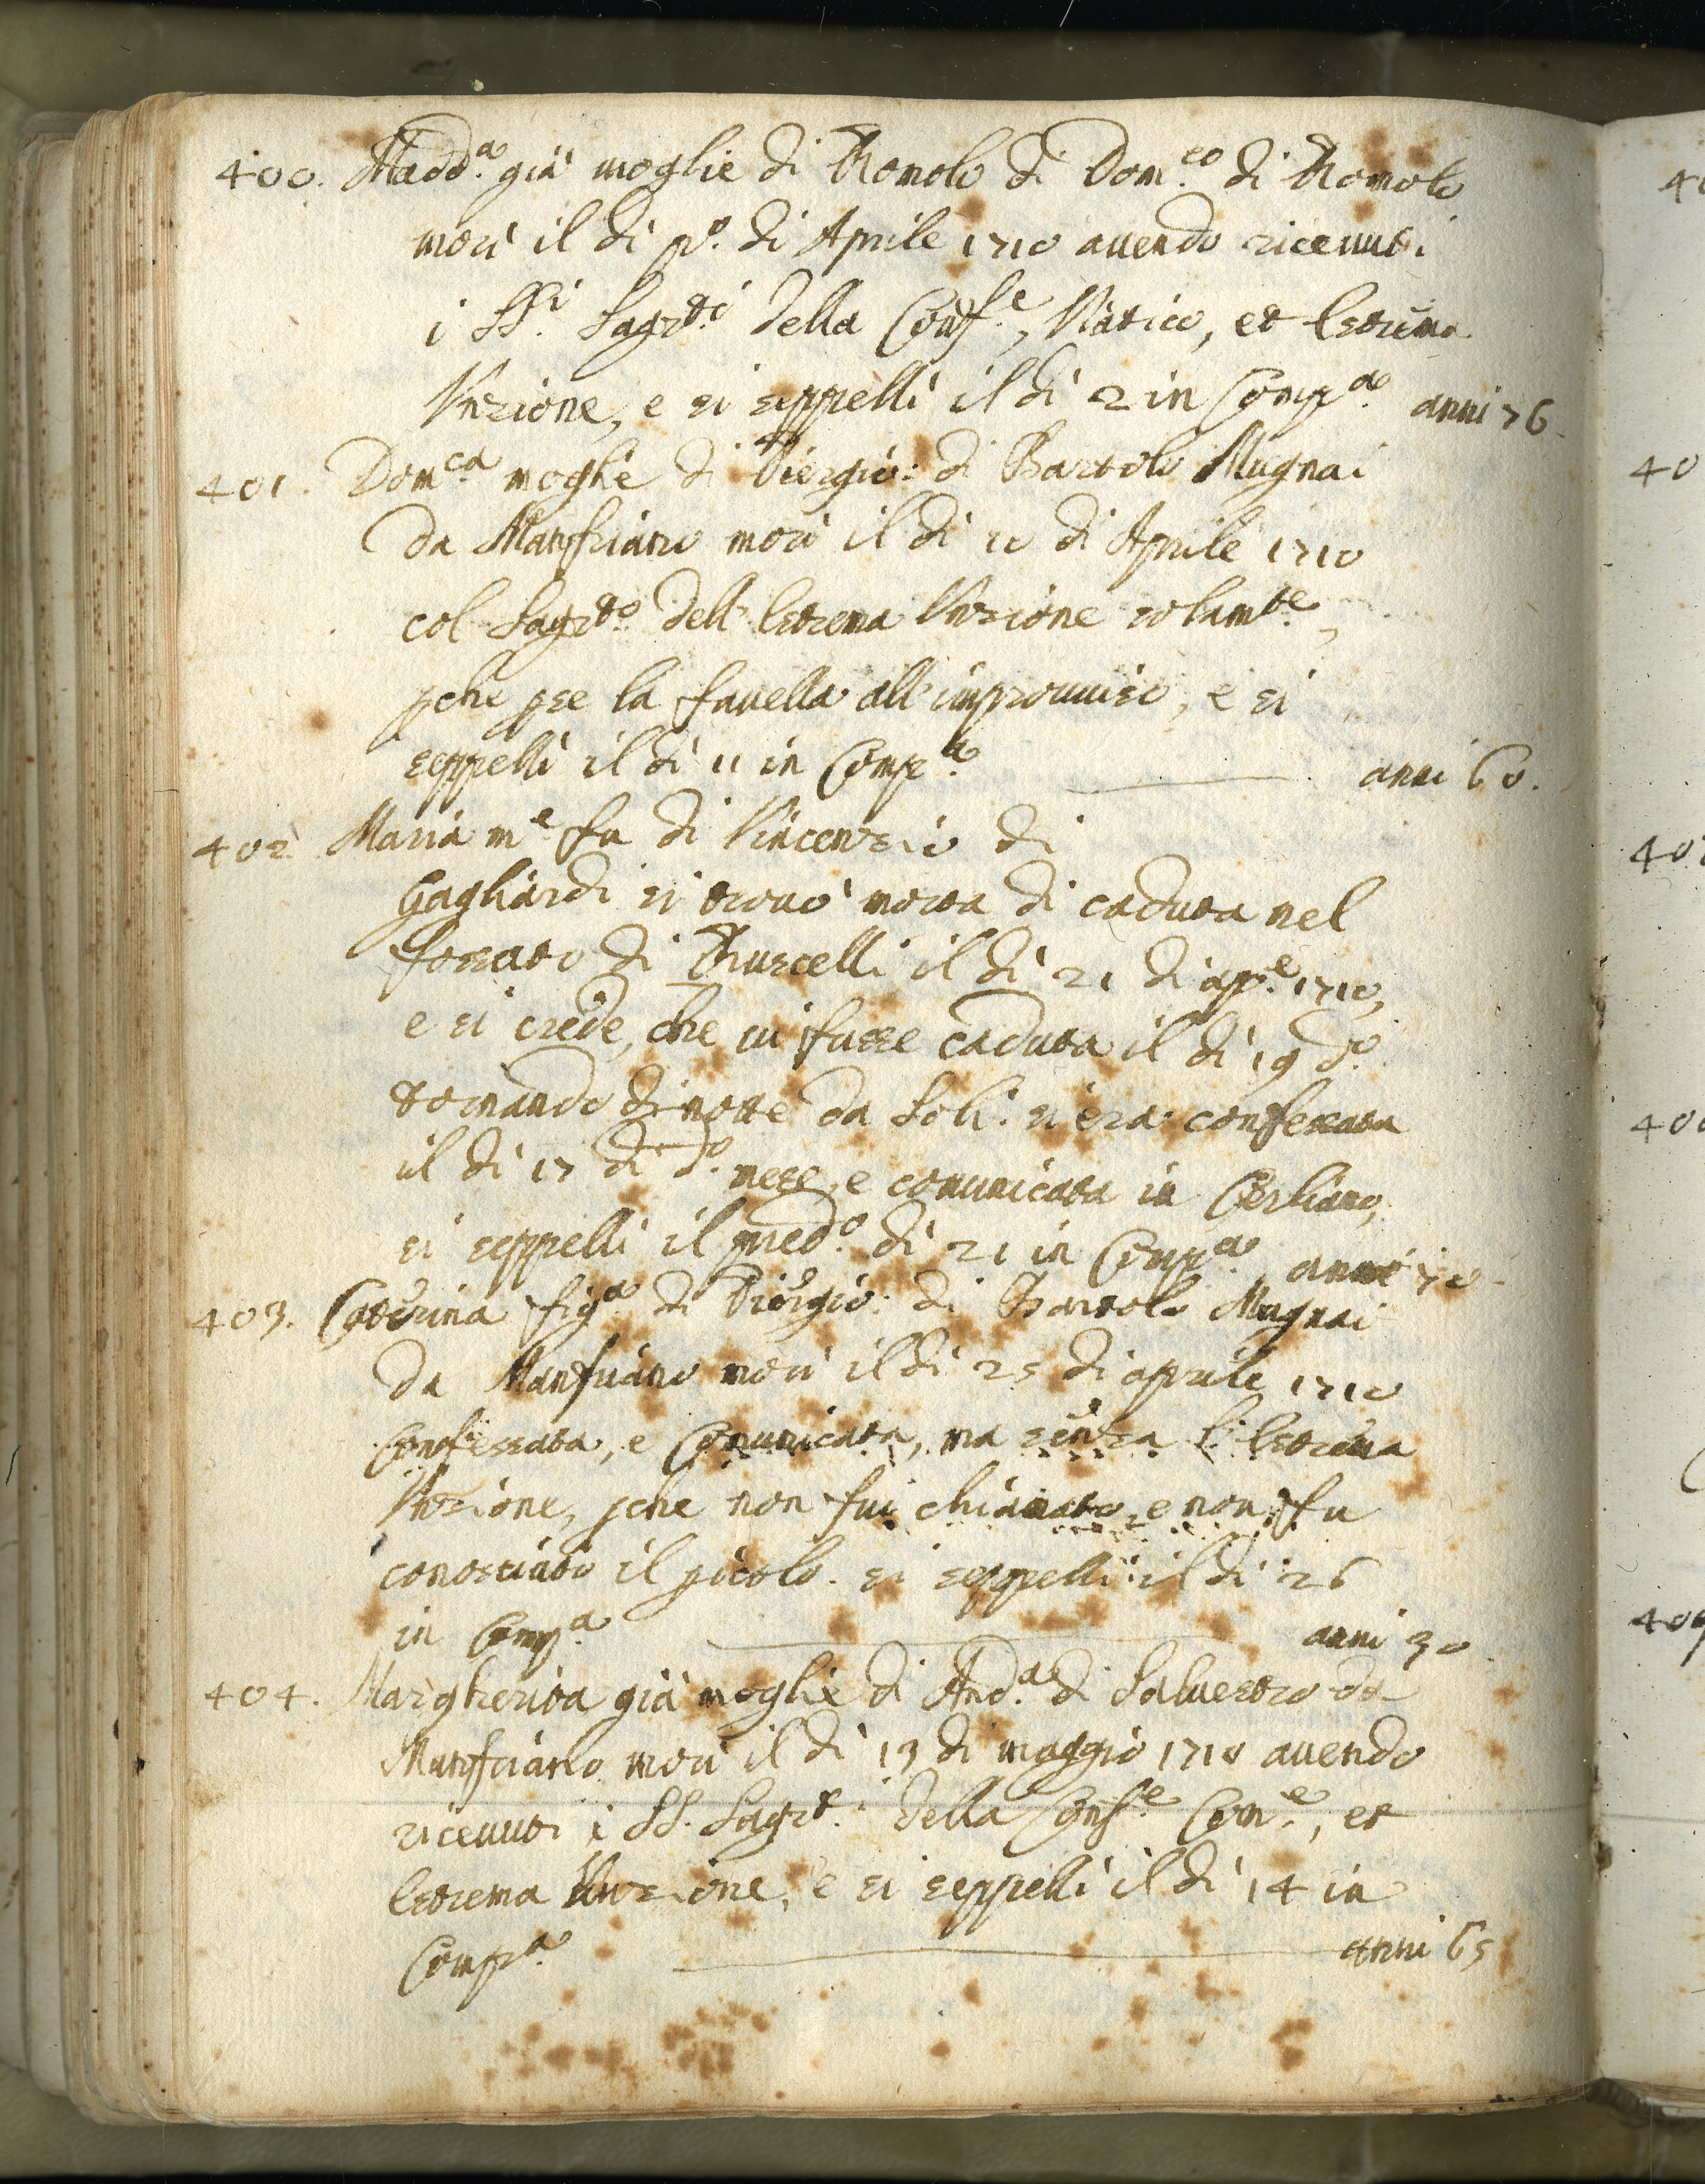 400. Madd.a già moglie di Romolo di Dom.co di Romolo
morì il dì p.o di Aprile 1710 auendo riceuuti
i SS.i Sagr.ti della Conf.e, Viatico, et Estrema
Vnzione, e si seppellì il dì 2 in Comp.a anni 76
401. Dom.ca moglie di Piergio: di Bartolo Mugnai
da Manfriano morì il dì 10 di Aprile 1710
col Sagr.to dell'Estrema Vnzione solam.te,
pche pse la fauella all'improuuiso, e si
seppellì il dì 11 in Comp.a anni 60.
402 Maria m.e fu di Vincenzio di
Gagliardi si trouò morta di caduta nel
fossato di Ruscelli il dì 21 di ap.e 1710,
e si crede, che ui fusse caduta il dì 19 d.o
tornando di notte da Soli. si era confessata
il dì 17 di d.o mese, e comunicata in
si seppellì il med.o dì 21 in Comp.a anni 70
403. Caterina fig.a di Piergio: di Bartolo Mugnai
da Manfriano morì il dì 25 di aprile 1710
Confessata, e Comunicata, ma senza l'Estrema
Vnzione, pche non fui chiamato, e non fu
conosciuto il picolo. si seppellì il dì 26
in Comp.a anni 30
404. Margherita già moglie di And.a di Saluestro da
Manfriano morì il dì 13 di maggio 1710 auendo
riceuuti i SS. Sagr.ti della Conf.e Com.e, et
Estrema Vnzione, e si seppellì il dì 14 in
Comp.a anni 65